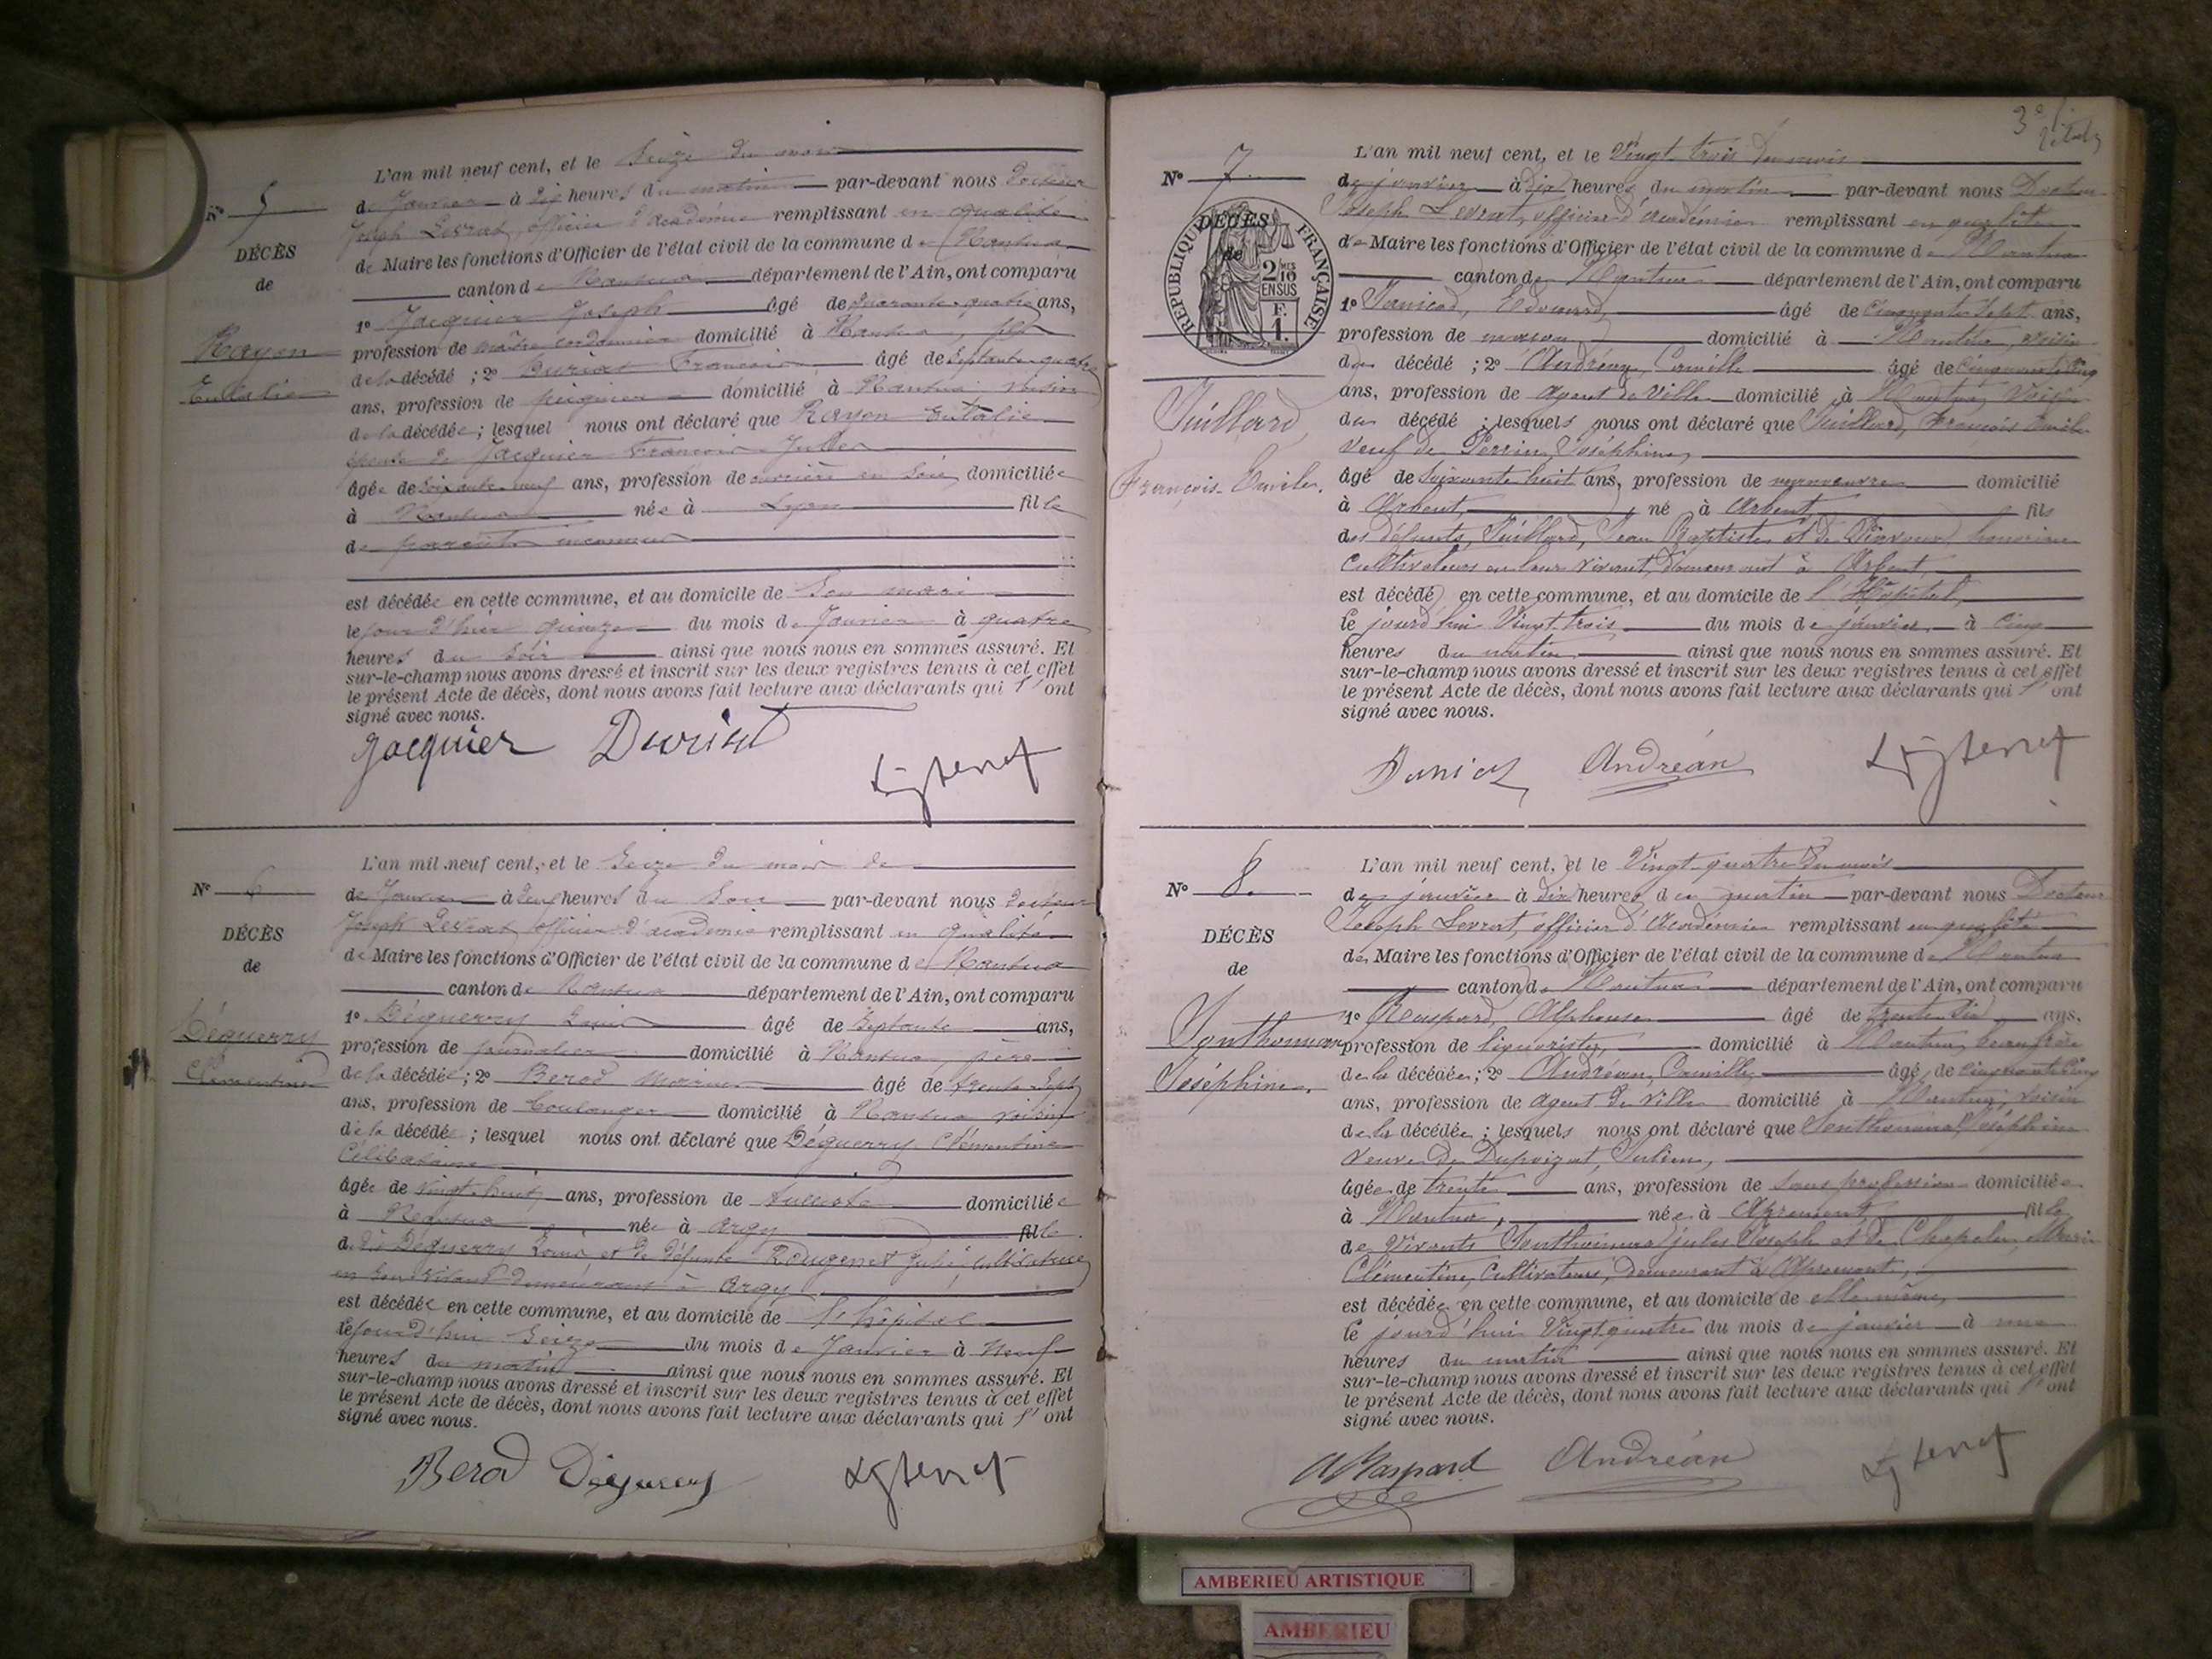 L'an mil neuf cent, et le Seize du mois
N° 5
de Janvier à dix heures du matin par-devant nous Docteur
Joseph Levrat, officier d'académie remplissant en qualité
DÉCÈS
de Maire les fonctions d'Officier de l'état civil de la commune de Nantua
de
canton de Nantua département de l'Ain, ont comparu
1° Jacquier Joseph âgé de quarante-quatre ans,
Rayon
profession de maître cordonnier domicilié à Nantua, fils
de la décédé; 2° Buriat François âgé de septante-quatre
Eulalie
ans, profession de peignier domicilié à Nantua voisin
de la décédée; lesquel nous ont déclaré que Rayon Eulalie
épouse de Jacquier François
âgée de soixante-neuf ans, profession de ouvrière en soie, domiciliée
à Nantua née à Lyon fille
de parents inconnus
est décédée en cette commune, et au domicile de son mari
le jour d'hier quinze du mois de Janvier à quatre
heures du soir ainsi que nous nous en sommes assuré. Et
sur-le-champ nous avons dressé et inscrit sur les deux registres tenus à cet effet
le présent Acte de décès, dont nous avons fait lecture aux déclarants qui l'ont
signé avec nous.
Jacquier
L'an mil neuf cent, et le Seize du mois de
N° 6
de Janvier à heures du Soir par-devant nous Docteur
Joseph Levrat, officier d'académie remplissant en qualité
DÉCÈS
de Maire les fonctions d'Officier de l'état civil de la commune de Nantua
de
canton de Nantua département de l'Ain, ont comparu
1° Déguerry Louis âgé de septante ans,
Déguerry
profession de journalier domicilié à Nantua, père
Clémentine
de la décédée; 2° Berod âgé de trente-sept
ans, profession de boulanger domicilié à Nantua voisin
de la décédée; lesquel nous ont déclaré que Déguerry Clémentine
Célibataire
âgée de vingt-huit ans, profession de domiciliée
à Nantua née à Argy fille
de Déguerry Louis et de défunte Rougenet Julie, cultivatrice
en son vivant demeurant à Argy
est décédée en cette commune, et au domicile de l'hôpital
le jourd'hui Seize du mois de Janvier à Neuf
heures du matin ainsi que nous nous en sommes assuré. Et
sur-le-champ nous avons dressé et inscrit sur les deux registres tenus à cet effet
le présent Acte de décès, dont nous avons fait lecture aux déclarants qui l'ont
signé avec nous.
Berod Déguerry
3e
L'an mil neuf cent, et le Vingt-trois du mois
N° 7
de janvier à dix heures du matin par-devant nous Docteur
Joseph Levrat, officier d'académie remplissant en qualité
DÉCÈS
de
RÉPUBLIQUE FRANÇAISE
2/10 EN SUS
F. 1.
de Maire les fonctions d'Officier de l'état civil de la commune de Nantua
canton de Nantua département de l'Ain, ont comparu
1° Edouard, âgé de Cinquante Sept ans,
profession de maçon domicilié à Nantua, voisin
du décédé; 2° Andréan, Camille âgé de cinquante cinq
ans, profession de Agent de Ville domicilié à Nantua, Voisin
Juillard,
du décédé; lesquels nous ont déclaré que Juillard, François Emile
veuf de Perrin, Joséphine,
François-Emile.
âgé de soixante huit ans, profession de manoeuvre domicilié
à Arbent, né à Arbent, fils
des défunts, Juillard, Jean Baptiste et de
Cultivateurs en leur vivant, demeurant à Arbent
est décédé en cette commune, et au domicile de l'Hôpital,
le jourd'hui Vingt trois du mois de janvier à Cinq
heures du matin ainsi que nous nous en sommes assuré. Et
sur-le-champ nous avons dressé et inscrit sur les deux registres tenus à cet effet
le présent Acte de décès, dont nous avons fait lecture aux déclarants qui l'ont
signé avec nous.
Andréan
L'an mil neuf cent, et le Vingt-quatre du mois
N° 8.
de janvier à dix heures du matin par-devant nous Docteur
Joseph Levrat, officier d'Académie remplissant en qualité
DÉCÈS
de Maire les fonctions d'Officier de l'état civil de la commune de Nantua
de
canton de Nantua département de l'Ain, ont comparu
1° Raspard, Alphonse âgé de trente six ans,
Sonthonnax
profession de liquoriste, domicilié à Nantua, beau-frère
Joséphine.
de la décédée; 2° Andréan, Camille, âgé de cinquante cinq
ans, profession de Agent de Ville domicilié à Nantua, voisin
de la décédée; lesquels nous ont déclaré que Sonthonnax, Joséphine
veuve de Dupoizat, Julien,
âgée de trente ans, profession de sans profession domiciliée
à Nantua, née à Apremont fille
de vivants Sonthonnax, jules Joseph et de Chapelu, Marie
Clémentine, Cultivateurs, demeurant à Apremont,
est décédée en cette commune, et au domicile de elle-même,
le jourd'hui Vingt quatre du mois de janvier à une
heures du matin ainsi que nous nous en sommes assuré. Et
sur-le-champ nous avons dressé et inscrit sur les deux registres tenus à cet effet
le présent Acte de décès, dont nous avons fait lecture aux déclarants qui l'ont
signé avec nous.
ARaspard Andréan
AMBERIEU ARTISTIQUE
AMBERIEU